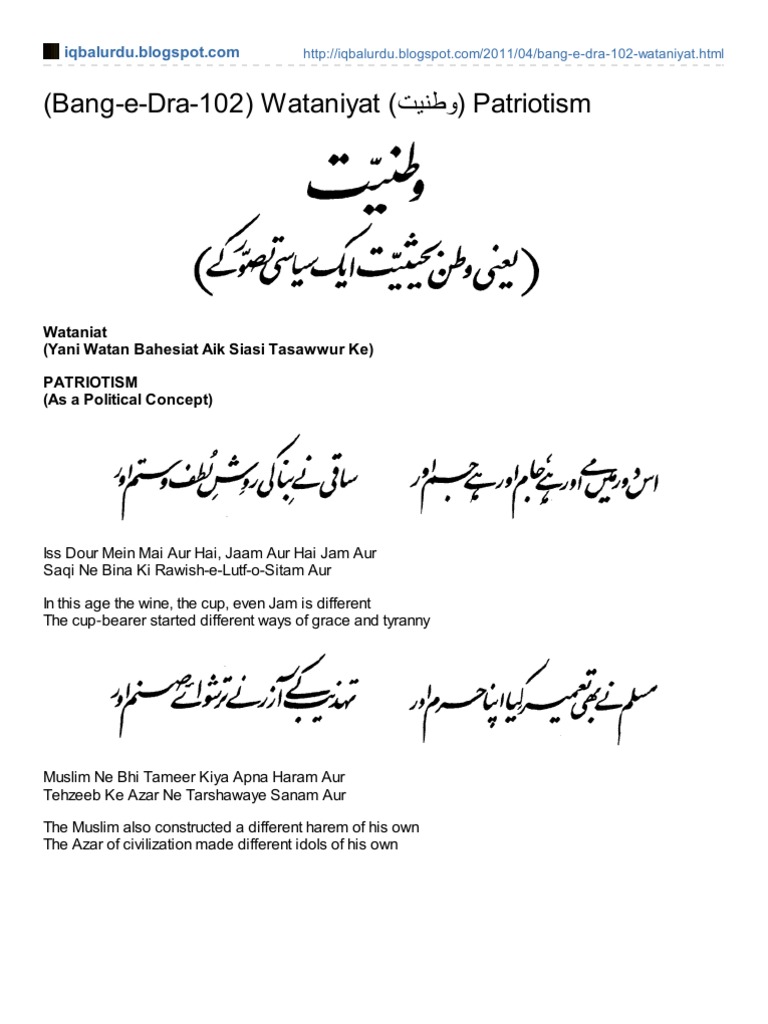 iqbalurdu.blogspot.com http://iqbalurdu.blogspot.com/2011/04/bang-e-dra-102-wataniyat.html
(Bang-e-Dra-102) Wataniyat (وطنیت) Patriotism
وطنیّت
(یعنی وطن بحیثیّت ایک سیاسی تصوّر کے)
Wataniat
(Yani Watan Bahesiat Aik Siasi Tasawwur Ke)
PATRIOTISM
(As a Political Concept)
اس دَور میں مے اور ہے، جام اور ہے جم اور ساقی نے بِنا کی روِشِ لُطف و ستم اور
Iss Dour Mein Mai Aur Hai, Jaam Aur Hai Jam Aur
Saqi Ne Bina Ki Rawish-e-Lutf-o-Sitam Aur
In this age the wine, the cup, even Jam is different
The cup-bearer started different ways of grace and tyranny
مسلم نے بھی تعمیر کیا اپنا حرم اور تہذیب کے آزر نے ترشوائے صنم اور
Muslim Ne Bhi Tameer Kiya Apna Haram Aur
Tehzeeb Ke Azar Ne Tarshawaye Sanam Aur
The Muslim also constructed a different harem of his own
The Azar of civilization made different idols of his own